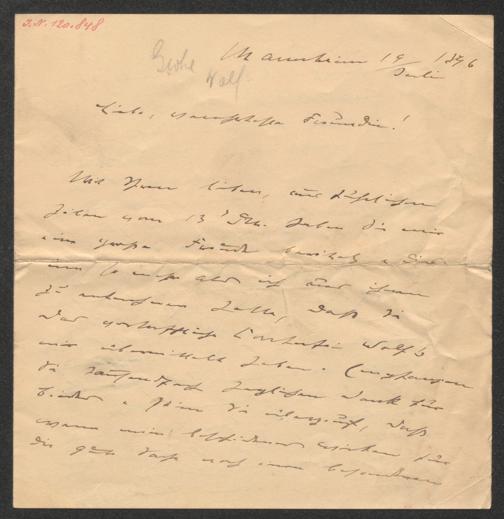 J.N. 120.848
Grohe
Wolf
Mannheim 19/Juli 1896
Liebe, verehrteste Freundin!
Mit Ihren lieben, ausführlichen
Zeilen vom 13 haben Sie mir
eine große Freude bereitet & diese
um so mehr als ich aus ihnen
zu entnehmen hatte, daß Sie
das vortreffliche Conterfei Wolf's
mir übermittelt haben. Empfangen
Sie tausendfach herzlichen Dank für
Beides & seien Sie überzeugt, daß
wenn mein bescheidenes wirken für
die gute Sache noch eines besonderen